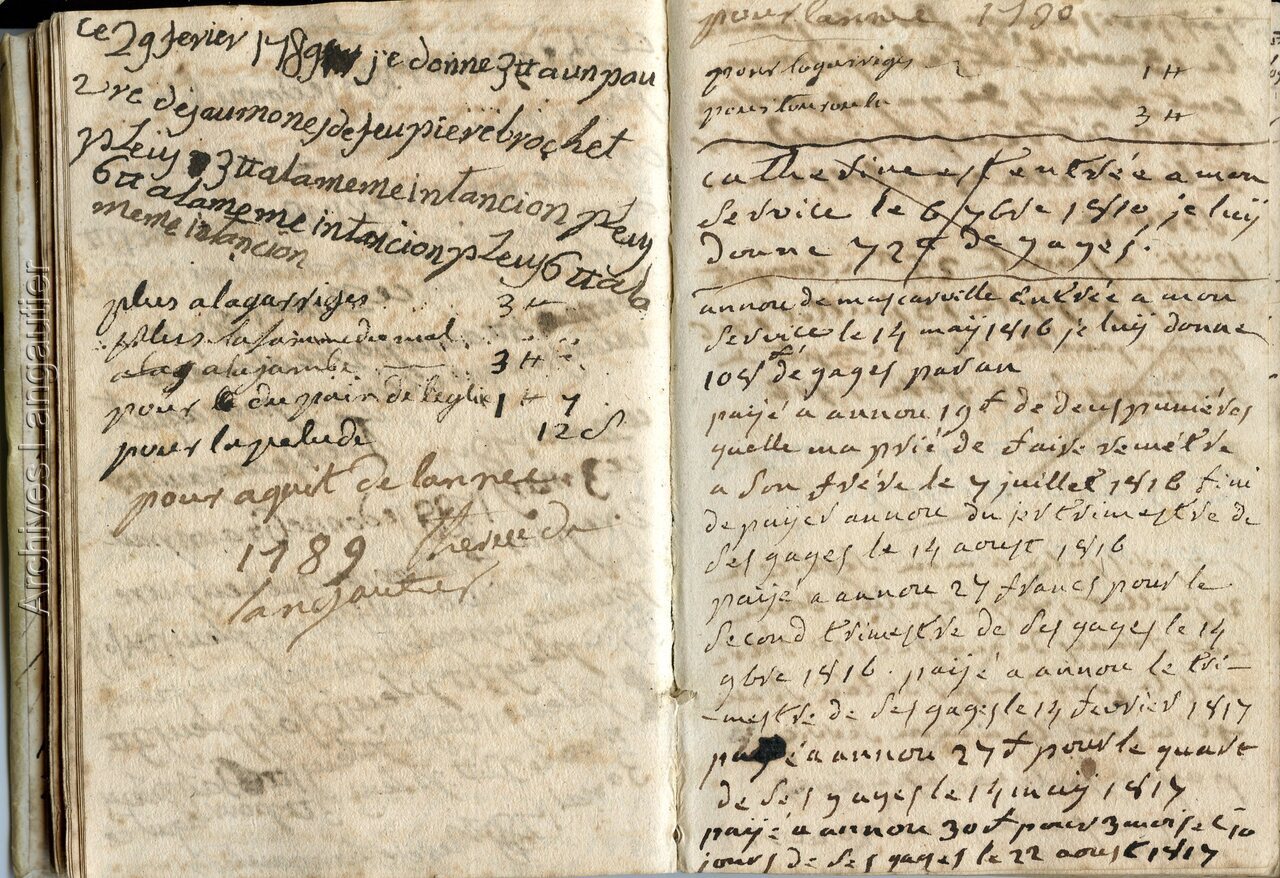 ce 29 fevrier 1789 je donne 3 tt a un pau
vre de jaumones de feu pierë brochet
pleuy 3 tt a la meme intancion pleuy
6 tt a la meme intancion pleuy 6 tt a la
meme intancion
plus a lagarriges 3 tt
plus
a la jambe 3 tt
pour du pain de leglise 1 tt 7
pour lapelude 12 s
pour aquit de lannee
1789 therese de
langautier
pour lannee 1790
pour lagarriges 1 tt
pour 3 tt
catherine est entrée a mon
service le 6 7bre 1810 je luij
donne 72 f de gages.
annou de mascarville entrée a mon
service le 14 maij 1816 je luij donne
108 f de gages par an
paijé a annou 19 f de deus pumiéres
quelle ma prié de faire remétre
a son frére le 7 juillet 1816 fini
de paijer annou du pr trimestre de
ses gages le 14 aoust 1816
paijé a annou 27 francs pour le
second trimestre de ses gages le 14
9bre 1816. paijé a annou le tri-
-mestre de ses gages le 14 fevrier 1817
paijé a annou 27 f pour le quart
de ses gages le 14 maij 1817
paijé a annou 30 f pour 3 mois et 10
jours de ses gages le 22 aoust 1817
Archives Langautier